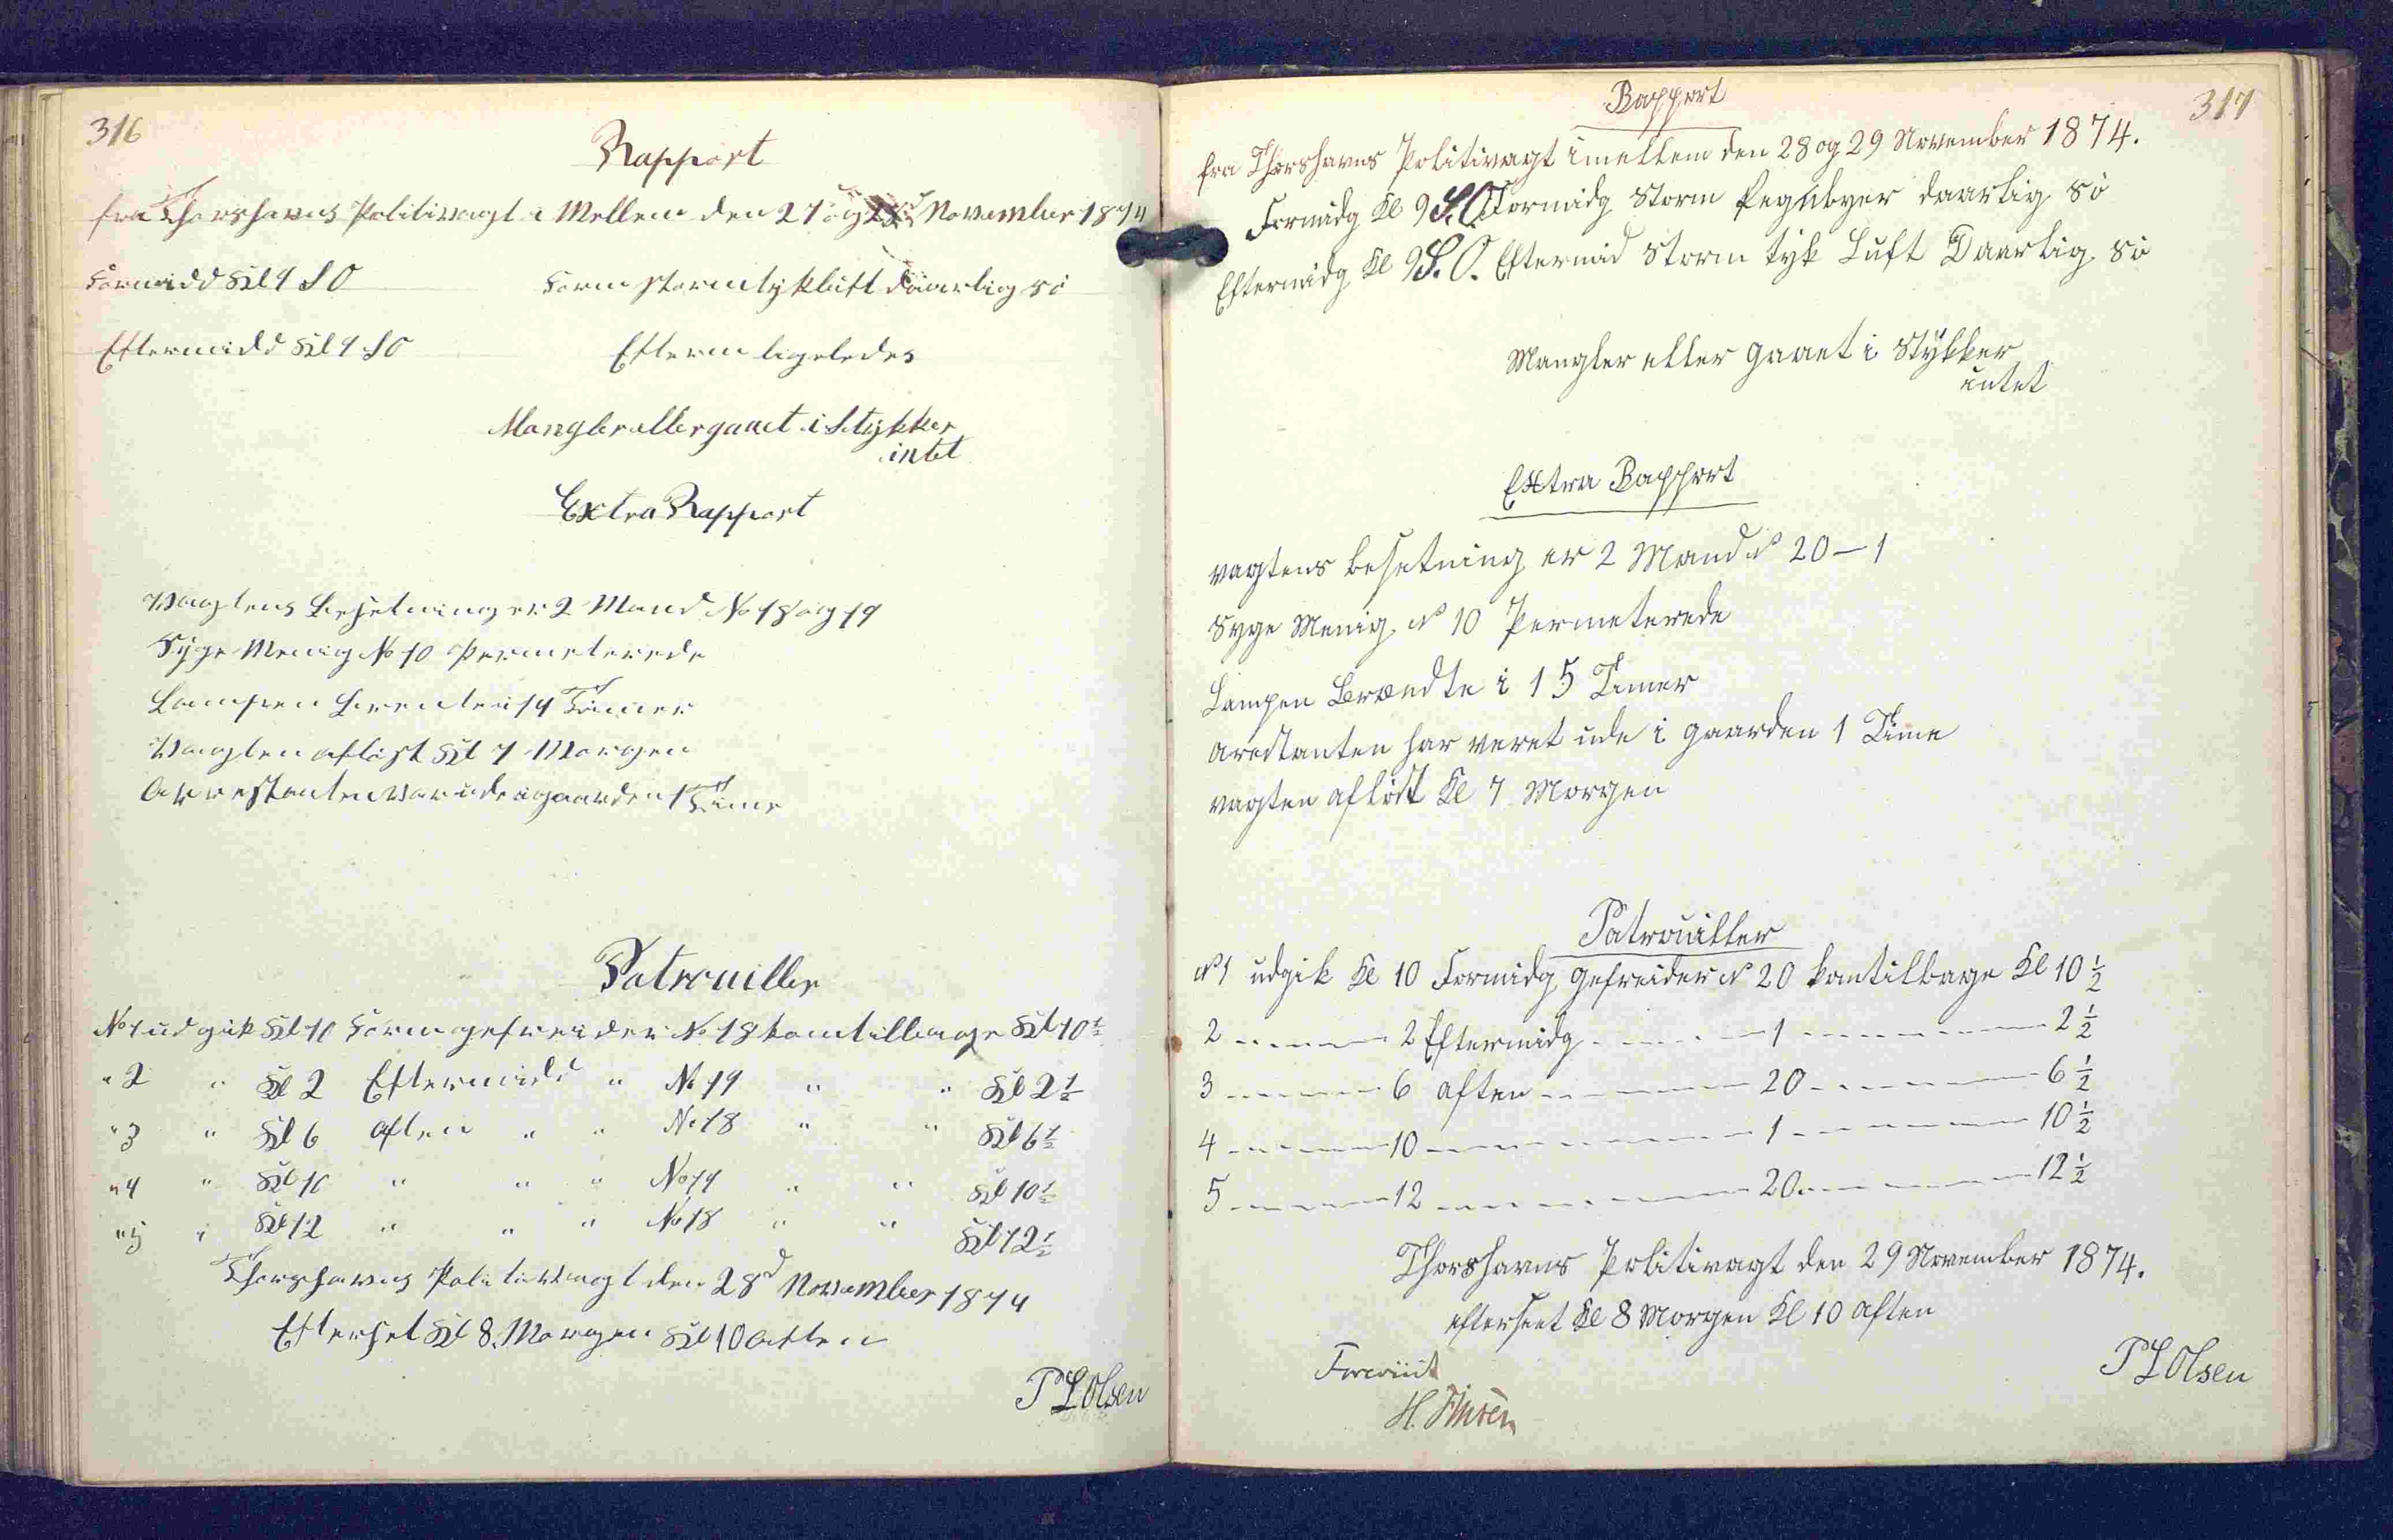 316
Rapport
fra Thorshavns Politivagt i Mellem den 27 og 28 November 1874
Formidd Kl 9 SO Form storm tykluft daarlig sö
Eftermidd Kl 9 SO Efterm ligeledes
Mangler eller gaaet i Stykker
intet
Extra Rapport
Vagtens Besetning er 2 Mand No 18 og 19
Syge Menig No 10 Permeterede
Lampen Brente i 14 Timer
Vagten aflöst Kl 7 Morgen
Arrestanten var ude i gaarden 1 Time
Patrouiller
No 1 udgik Kl 10 Form gefreider No 18 kom tilbage Kl 10½
" 2 " Kl 2 Eftermidd " No 19 " " Kl 2½
" 3 " Kl 6 Aften " " No 18 " " Kl 6½
" 4 " Kl 10 " " " No 19 " " Kl 10½
" 5 " Kl 12 " " " No 18 " " Kl 12½
Thorshavns Politivagt den 28d November 1874
Efterset Kl 8 Morgen Kl 10 Aften
P L Olsen
317
Rapport
fra Thorshavns Politivagt imellem den 28 og 29 November 1874.
Formidg Kl 9 S.O. Formidg Storm Regnbyer daarlig Sö
Eftermidg Kl 9 S.O. Eftermid Storm tyk Luft Daarlig Sö
Mangler eller gaaet i Stykker
intet
Extra Rapport
vagtens besetning er 2 Mand No 20 – 1
Syge Menig No 10 Permeterede
Lampen Brændte i 15 Timer
arestanten har veret ude i gaarden 1 Time
vagten aflöst Kl 7 Morgen
Patrouiller
No 1 udgik Kl 10 Formidg gefreider No 20 kom tilbage Kl 10½
2 ------ 2 Eftermidg ------ 1 ------ 2½
3 ------ 6 aften ------ 20 ------ 6½
4 ------ 10 ------ 1 ------ 10½
5 ------ 12 ------ 20 ------ 12½
Thorshavns Politivagt den 29 November 1874.
efterseet Kl 8 Morgen Kl 10 aften
P L Olsen
Foreviist
H. Finsen